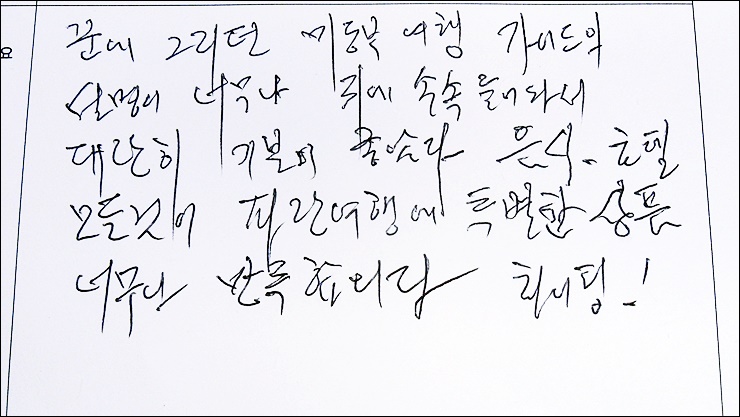 꿈에 그리던 미동북 여행 가이드의
설명이 너무나 귀에 속속 들어와서
대단히 기분이 좋았다 음식. 호텔
모든것이 파란여행에 특별한 상품
너무나 만족합니다 화이팅!
요